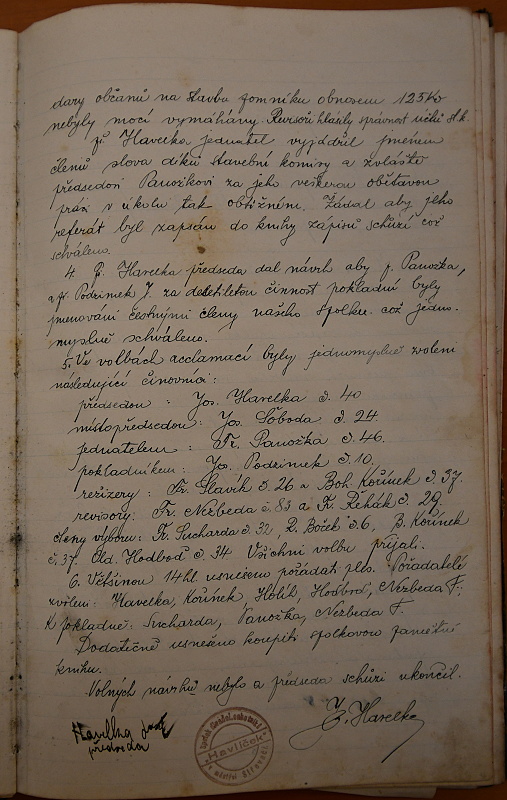 dary občanů na stavbu pomníku obnosem 125 Kč
nebyly mocí vymáhány. Revisoři hlásily správnost účtů st.k.
př. Havelka jednatel vyjádřil jménem
členů slova díků stavební komisy a zvláště
předsedovi Panožkovi za jeho veškerou obětavou
práci v úkolu tak obtížném. Žádal aby jeho
referát byl zapsán do knihy zápisů schůzí což
schváleno.
4. p. Havelka předseda dal návrh aby p. Panožka,
a p. Podzimek J. za desetiletou činnost pokladní byly
jmenováni čestnými členy našeho spolku což jedno-
myslně schváleno.
5. Ve volbách acclamací byly jednomyslně zvoleni
následující činovníci:
předsedou: Jos. Havelka č. 40
místopředsedou: Jos. Soboda č. 24
jednatelem: Fr. Panožka č. 46.
pokladníkem: Jos. Podzimek č. 10.
režizery: Fr. Slavík č. 26 a Boh. Kořínek č. 37.
revisory: Fr. Nezbeda č. 83 a Fr. Řehák č. 29.
členy výboru: Fr. Sucharda č. 32, R. Boček č. 6, B. Kořínek
č. 37. Old. Hodboď č. 34 Všichni volbu přijali.
6. Většinou 14 hl. usneseno pořádati ples. Pořadatelé
zvoleni: Havelka, Kořínek, Holík, Hodboď, Nezbeda F.,
K pokladně: Sucharda, Panožka, Nezbeda F.
Dodatečně usneseno koupiti spolkovou pamětní
knihu.
Volných návrhů nebylo a předseda schůzi ukončil.
Havelka Josef
předseda
"Havlíček"
J. Havelka